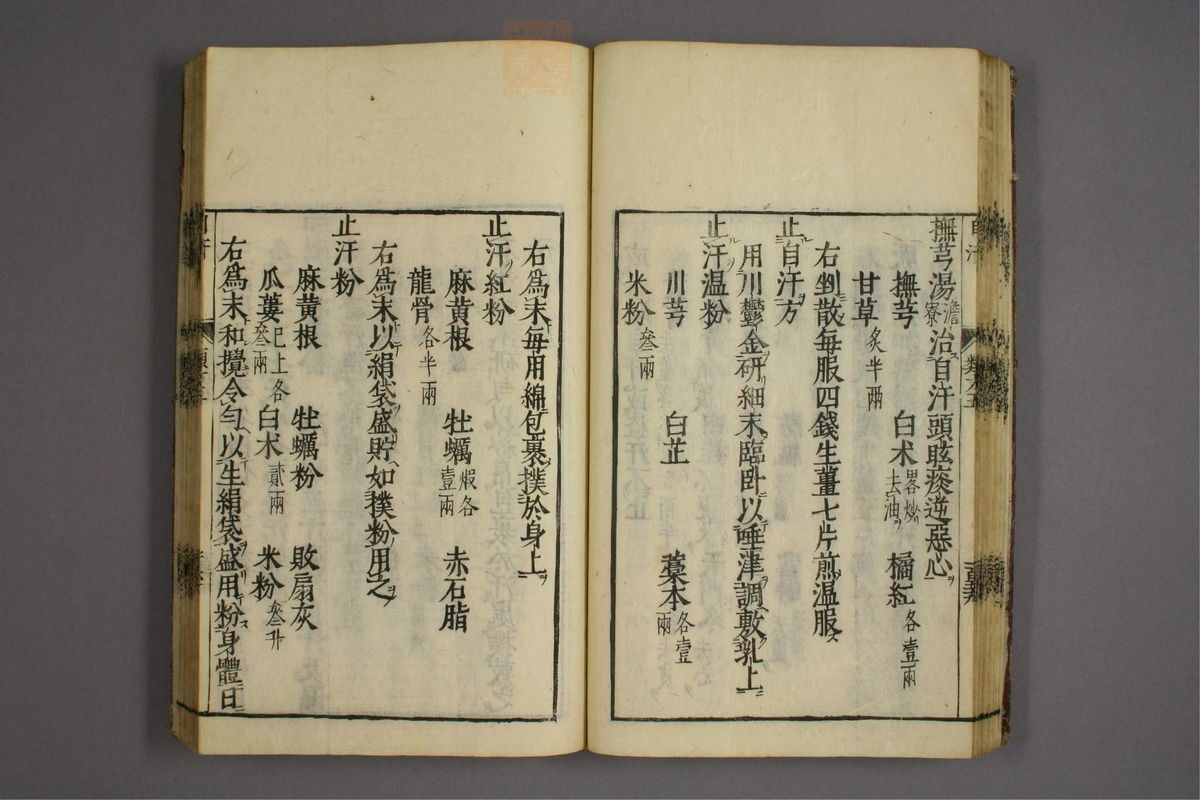 撫芎湯澹寮治自汗頭眩痰逆惡心
撫芎 白朮畧炒去油 橘紅各壹兩
甘草炙半兩
右剉散每服四錢生薑七片煎溫服
止自汗方
用川鬱金研細末臨卧以唾津調敷乳上
止汗溫粉
川芎 白芷 藁本各壹兩
米粉叄兩
右爲末每用綿包裹撲於身上
止汗紅粉
麻黃根 牡蠣煆各壹兩 赤石脂
龍骨各半兩
右爲末以絹袋盛貯如撲粉用之
止汗粉
麻黃根 牡蠣粉 敗扇灰
瓜蔞已上各叄兩 白朮貳兩 米粉叄升
右爲末和攪令勻以生絹袋盛用粉身體日